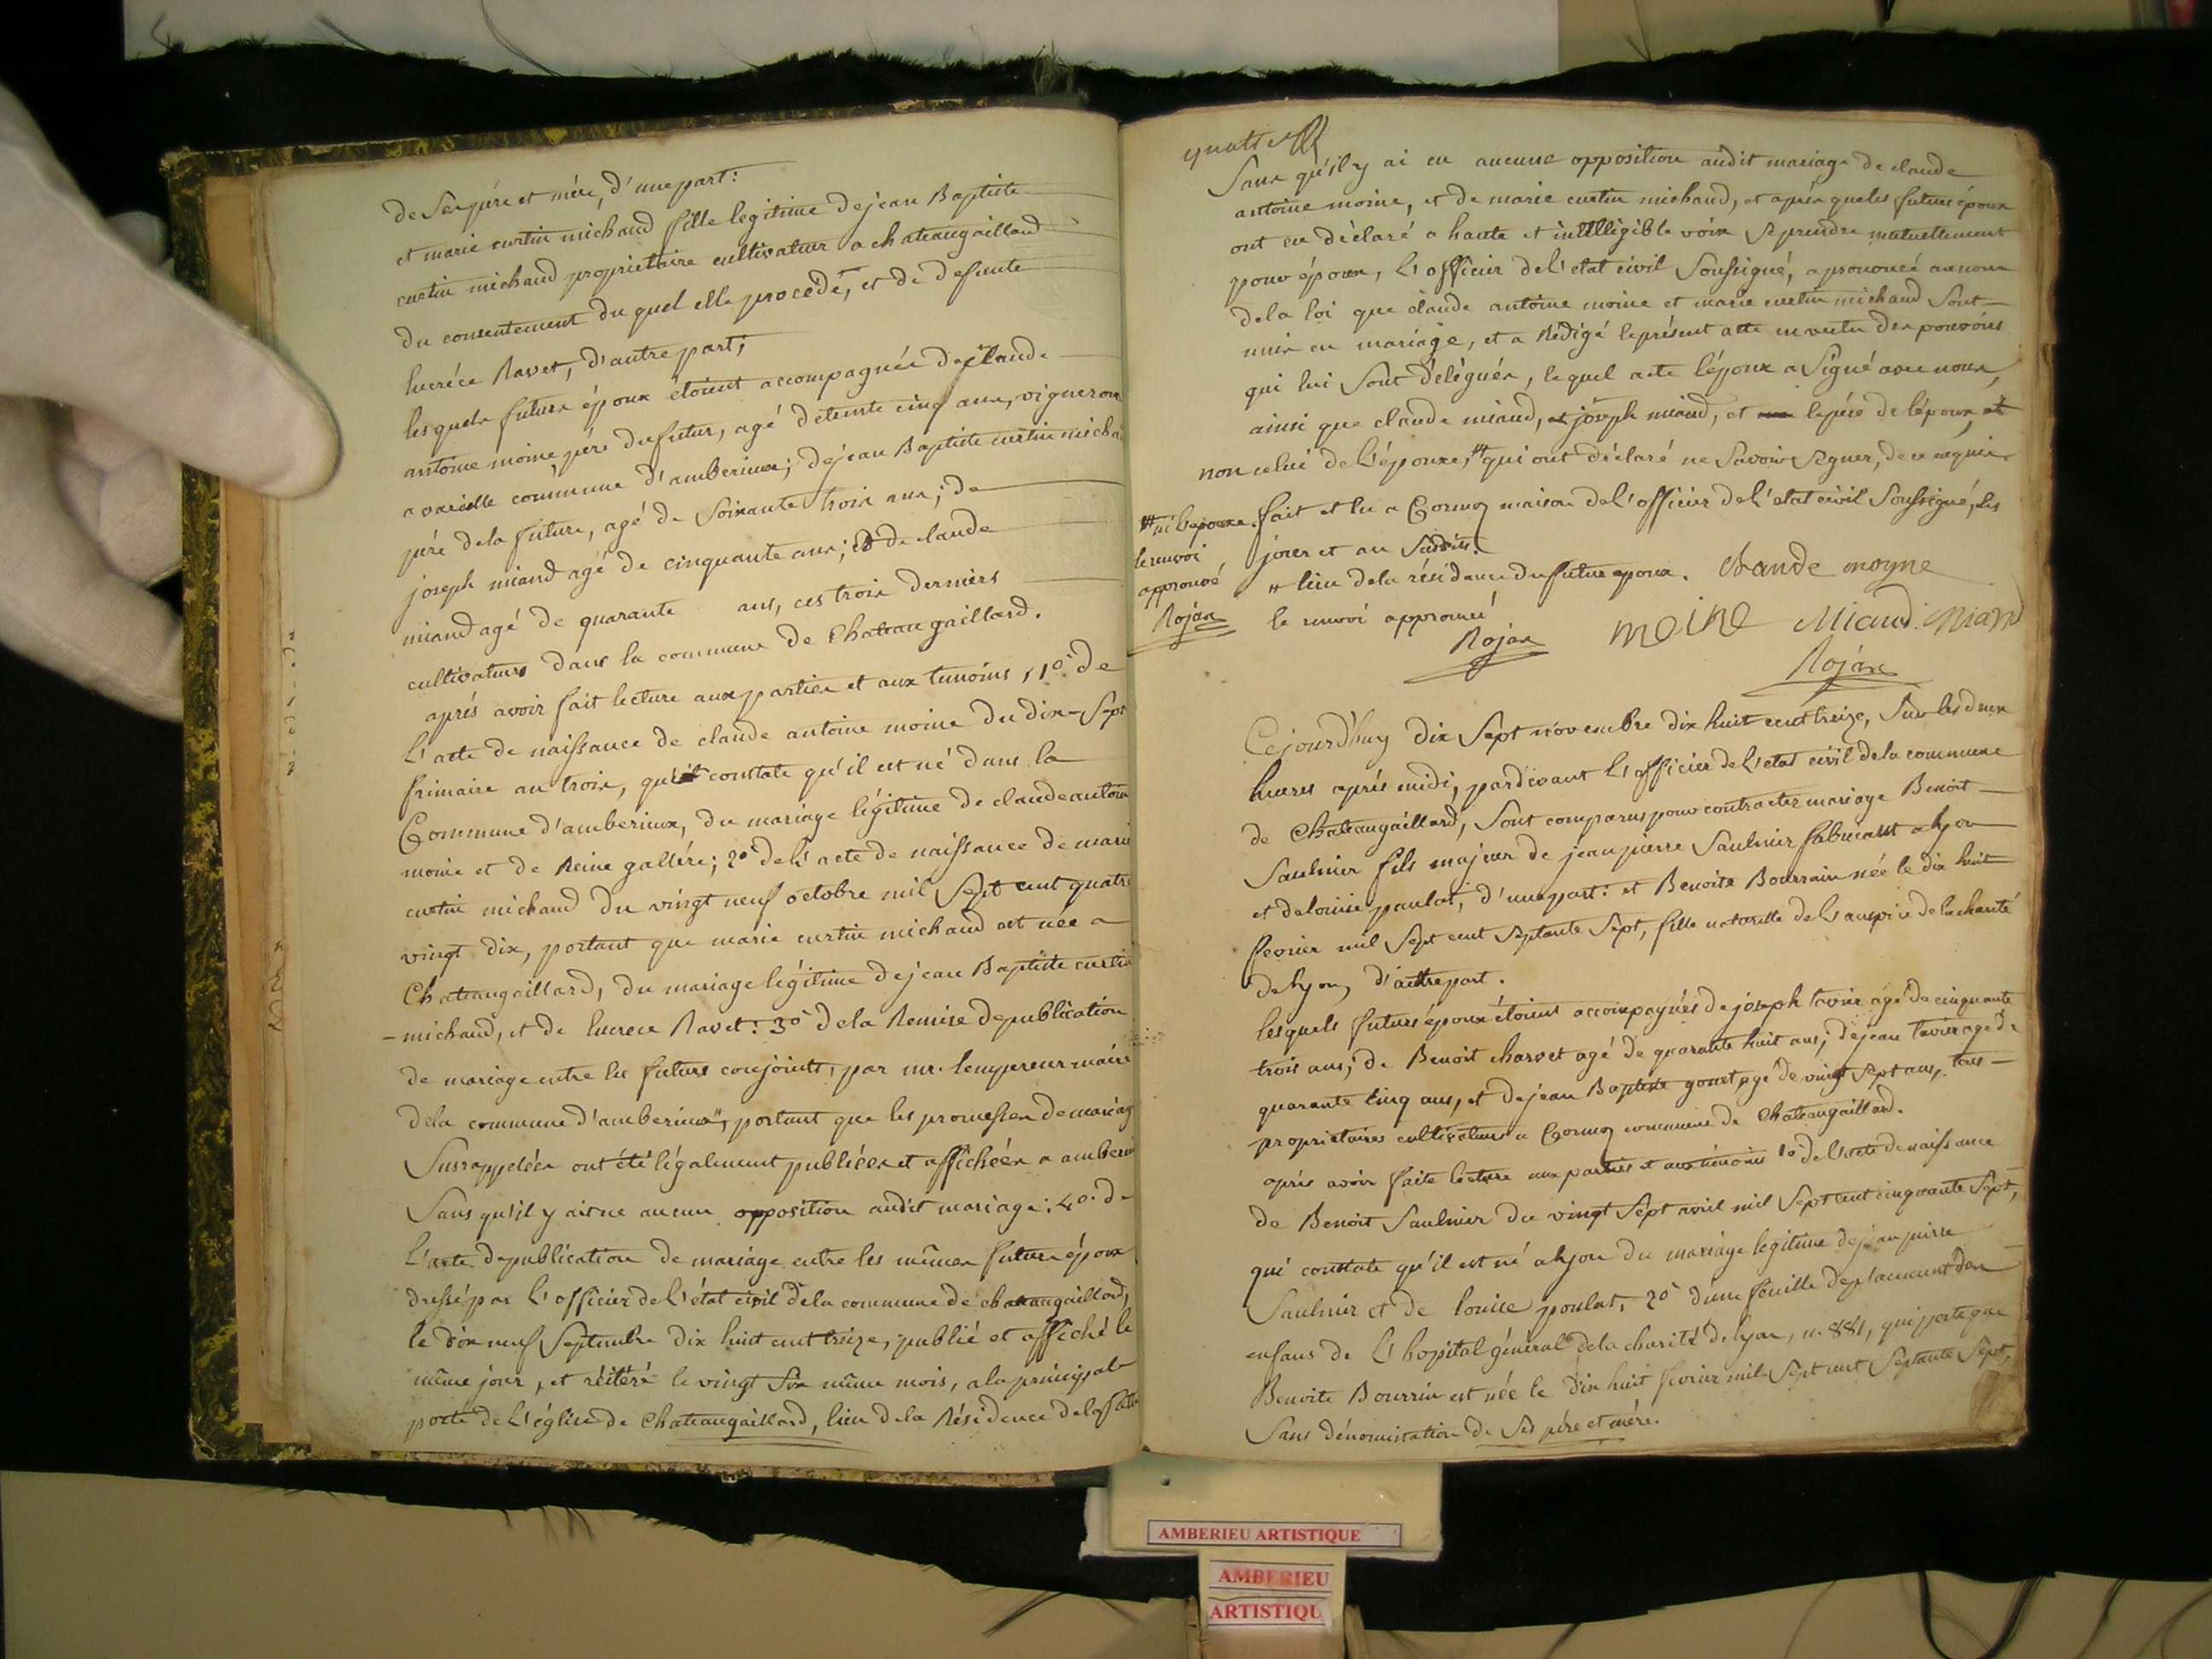 de Ses père et mère, d'une part:
et marie curtin michaud fille legitime de jean Baptiste
curtin michaud propriétaire cultivateur a chateaugaillard
du consentement du quel elle procede, et de defunte
lucréce Ravet, d'autre part;
lesquels futurs époux étoient accompagnés de claude
antoine moine père du futur, agé de trente cinq ans, vigneron
a vareille commune d'amberieux; de jean Baptiste curtin micha
père de la future, agé de Soixante trois ans; de
joseph miand agé de cinquante ans; et de claude
miand agé de quarante ans, ces trois derniers
cultivateurs dans la commune de Chateaugaillard.
aprés avoir fait lecture aux parties et aux temoins, 1º. de
L'acte de naissance de claude antoine moine du dix-Sept
frimaire an trois, qui constate qu'il est né dans la
Commune d'amberieux, du mariage légitime de claude antoin
moine et de Reine gallére; 2º de l'acte de naissance de marie
curtin michaud du vingt neuf octobre mil Sept cent quatre
vingt dix, portant que marie curtin michaud est née a
Chateaugaillard, du mariage légitime de jean Baptiste curtin
-michaud, et de lucrece Ravet: 3º de la Remise de publication
de mariage entre les futurs conjoints, par mr. lempereur maire
de la commune d'amberieux", portant que les promesses de mariage
Susrappelées ont été légalement publiées et affichées a amberie
Sans qu'il y ait ue aucun opposition audit mariage: 4º. de
L'acte de publication de mariage entre les mêmes futurs époux
dressé par L'officier de L'état civil de la commune de chateaugaillard,
le dix neuf Septembre dix huit cent treize, publié et affiché le
même jour, et réitéré le vingt Six même mois, a la principale
porte de L'église de Chateaugaillard, lieu de la Résidence de la future
quatre
Sans qu'il y ai eu aucune opposition audit mariage de claude
antoine moine, et de marie curtin michaud, et après que les futurs époux
ont eu déclaré a haute et intelligible voix Se prendre mutuellement
pour époux, L'officier de L'etat civil Soussigné, a prononcé au nom
de la loi que claude antoine moine et marie curtin michaud Sont
unis en mariage, et a Rédigé le présent acte en vertu des pouvoirs
qui lui Sont délégués, lequel acte l'époux a Signé avec nous,
ainsi que claude miand, et joseph miand, et le père de l'époux, et
non celui de L'épouse, qui ont déclaré ne Savoir Signer, de ce requis
ni l'epouse. fait et lu a Cormoz maison de L'officier de L'etat civil Soussigné, les
le renvoi
approuvé
Rojas
jour et an Susdits.
" lieu de la résidence du futur epoux. Claude moyne
le renvoi approuvé
Rojas moine Miand. Miand
Rojas
Cejourd'huy dix Sept novembre dix huit cent treize, Sur les deux
heures après midi, pardevant L'officier de L'etat civil de la commune
de Chateaugaillard, Sont comparus pour contracter mariage Benoit
Saulnier fils majeur de jean pierre Saulnier fabricant a lyon
et de louise paulat, d'une part: et Benoite Bourrin née le dix huit
fevrier mil Sept cent Septante Sept, fille naturelle de L'auspice de la charité
de lyon, d'autre part.
lesquels futurs époux étoient accompagnés de joseph tavier agé de cinquante
trois ans; de Benoit charvet agé de quarante huit ans; de jean tavier agé de
quarante cinq ans, et de jean Baptiste gonet, agé de vingt Sept ans, tous
proprietaires cultivateurs a Cormoz commune de Chateaugaillard.
après avoir faite lecture aux parties et aux témoins 1º de L'acte de naissance
de Benoit Saulnier du vingt Sept avril mil Sept cent cinquante Sept,
qui constate qu'il est né a lyon du mariage legitime de jean pierre
Saulnier et de louise poulat, 2º d'une feuille de placement des
enfans de L'hopital général de la charité de lyon, n. 881, qui porte que
Benoite Bourrin est née le dix huit fevrier mil Sept cent Septante Sept,
Sans dénomination de Ses père et mère.
AMBERIEU ARTISTIQUE
AMBERIEU
ARTISTIQU